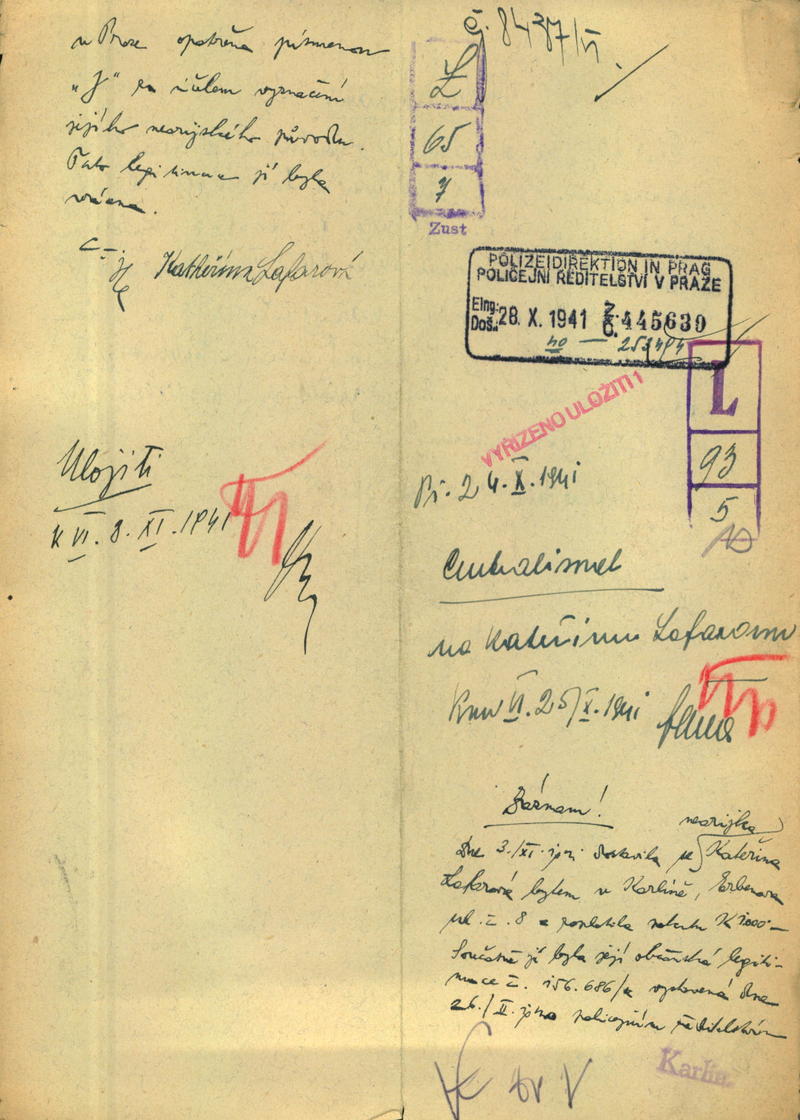 v Praze opatřena písmenem
„J“ za účelem vyznačení
jejího nearijského původu.
Tato legitimace jí byla
vrácena.
Kateřina Lafarová
Uložiti
K VI. 8. XI. 1941
č. 8437/VI
Ž
65
7
Zust
POLIZEIDIREKTION IN PRAG
POLICEJNÍ ŘEDITELSTVÍ V PRAZE
Eing.:
Doš.: 28. X. 1941 Z. Č. 445639
VYŘÍZENO ULOŽITI!
L
93
5
Př. 24. X. 1941
na Kateřinu Lafarovou
VI. 25/X. 1941
Záznam!
nearijka
Dne 3./XI. t.r. dostavila se Kateřina
Lafarová bytem v Karlíně, Erbenova
ul. č. 8 a zaplatila pokutu K 1000·–
Současně jí byla její občanská legiti-
mace č. 156.686/ vystavená dne
26./II. policejním ředitelstvím
Karlín